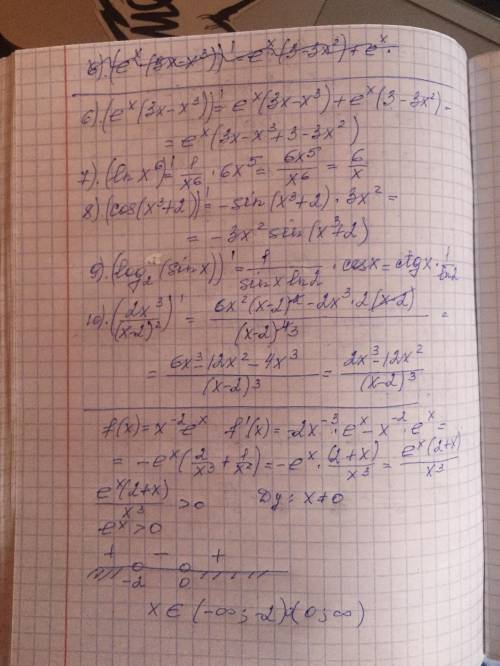 6).(e^x(3x-x^3))' = e^x(3-3x^2)+e^x.
6).(e^x(3x-x^3))' = e^x(3x-x^3)+e^x(3-3x^2)=
= e^x(3x-x^3+3-3x^2)
7).(ln x^6)' = 1/x^6 · 6x^5 = 6x^5/x^6 = 6/x
8).(cos(x^3+2))' = -sin(x^3+2)·3x^2 =
= -3x^2 sin(x^3+2)
9).(log_2(sinx))' = 1/(sinx ln2) · cosx = ctgx · 1/ln2
10).(2x^3/(x-2)^2)' = (6x^2(x-2)^2 - 2x^3·2(x-2))/(x-2)^4 3 =
= (6x^3-12x^2-4x^3)/(x-2)^3 = (2x^3-12x^2)/(x-2)^3
f(x)=x^-2 e^x f'(x)=-2x^-3·e^x - x^-2·e^x =
= -e^x(2/x^3 + 1/x^2) = -e^x · (2+x)/x^3 = e^x(2+x)/x^3
e^x(2+x)/x^3 > 0 Dy: x≠0
e^x>0
+ - +
-2 0
x∈(-∞;-2)(0;∞)